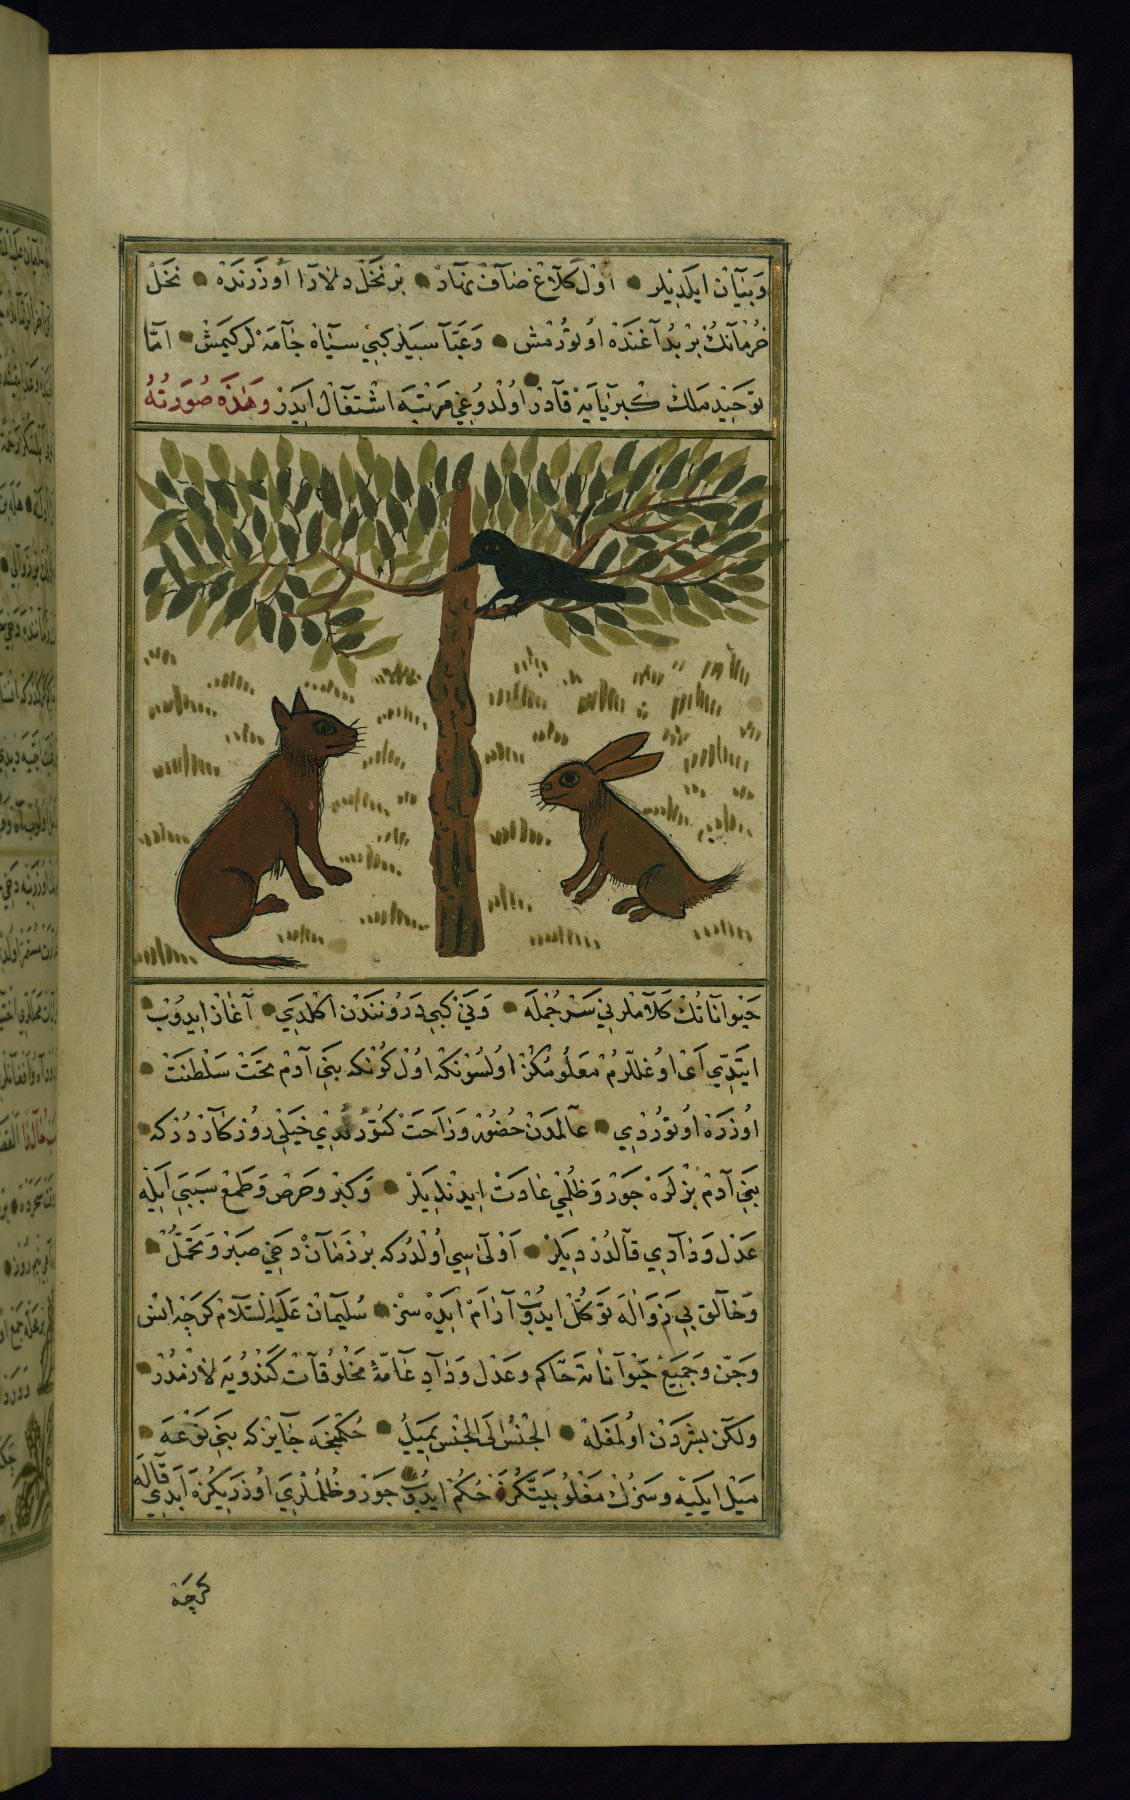 وبيان ايلديلر اول كلاغ صاف نهاد بر نخل دلارا اوزرنده نخل
خرمانك بر بداغنده اوتورمش وعباسيلر كبي سياه جامه لر كيمش اما
توحيد ملك كبريايه قادر اولدوغي مرتبه اشتغال ايدر وهذه صورته
حيواناتك كلاملرني سرجمله وني كبي درونندن اكلدي آغاز ايدوب
ايتدي اي اوغللرم معلومكز اولسونكه اول كونكه بني آدم تخت سلطنت
اوزره اوتوردي عالمدن حضور وراحت كتوردي خيلي روزكاردركه
بني آدم بزلره جور وظلمي عادت ايدنديلر وكبر وحرص وطمع سببي ايله
عدل ودادي قالدرديلر اولى سي اولدركه بر زمان دخي صبر وتحمل
وخالق بي زواله توكل ايدوب آرام ايده سز سليمان عليه السلام كرچه انس
وجن وجميع حيواناته حاكم وعدل وداد عامه مخلوقات كندويه لازمدر
ولكن بشردن اولمغله الجنس الى الجنس يميل حكمنجه جايزكه بني نوعه
ميل ايليه وسزك مغلوبيتكزه حكم ايدوب جور وظلملري اوزريكزه ابدي قاله
كرچه